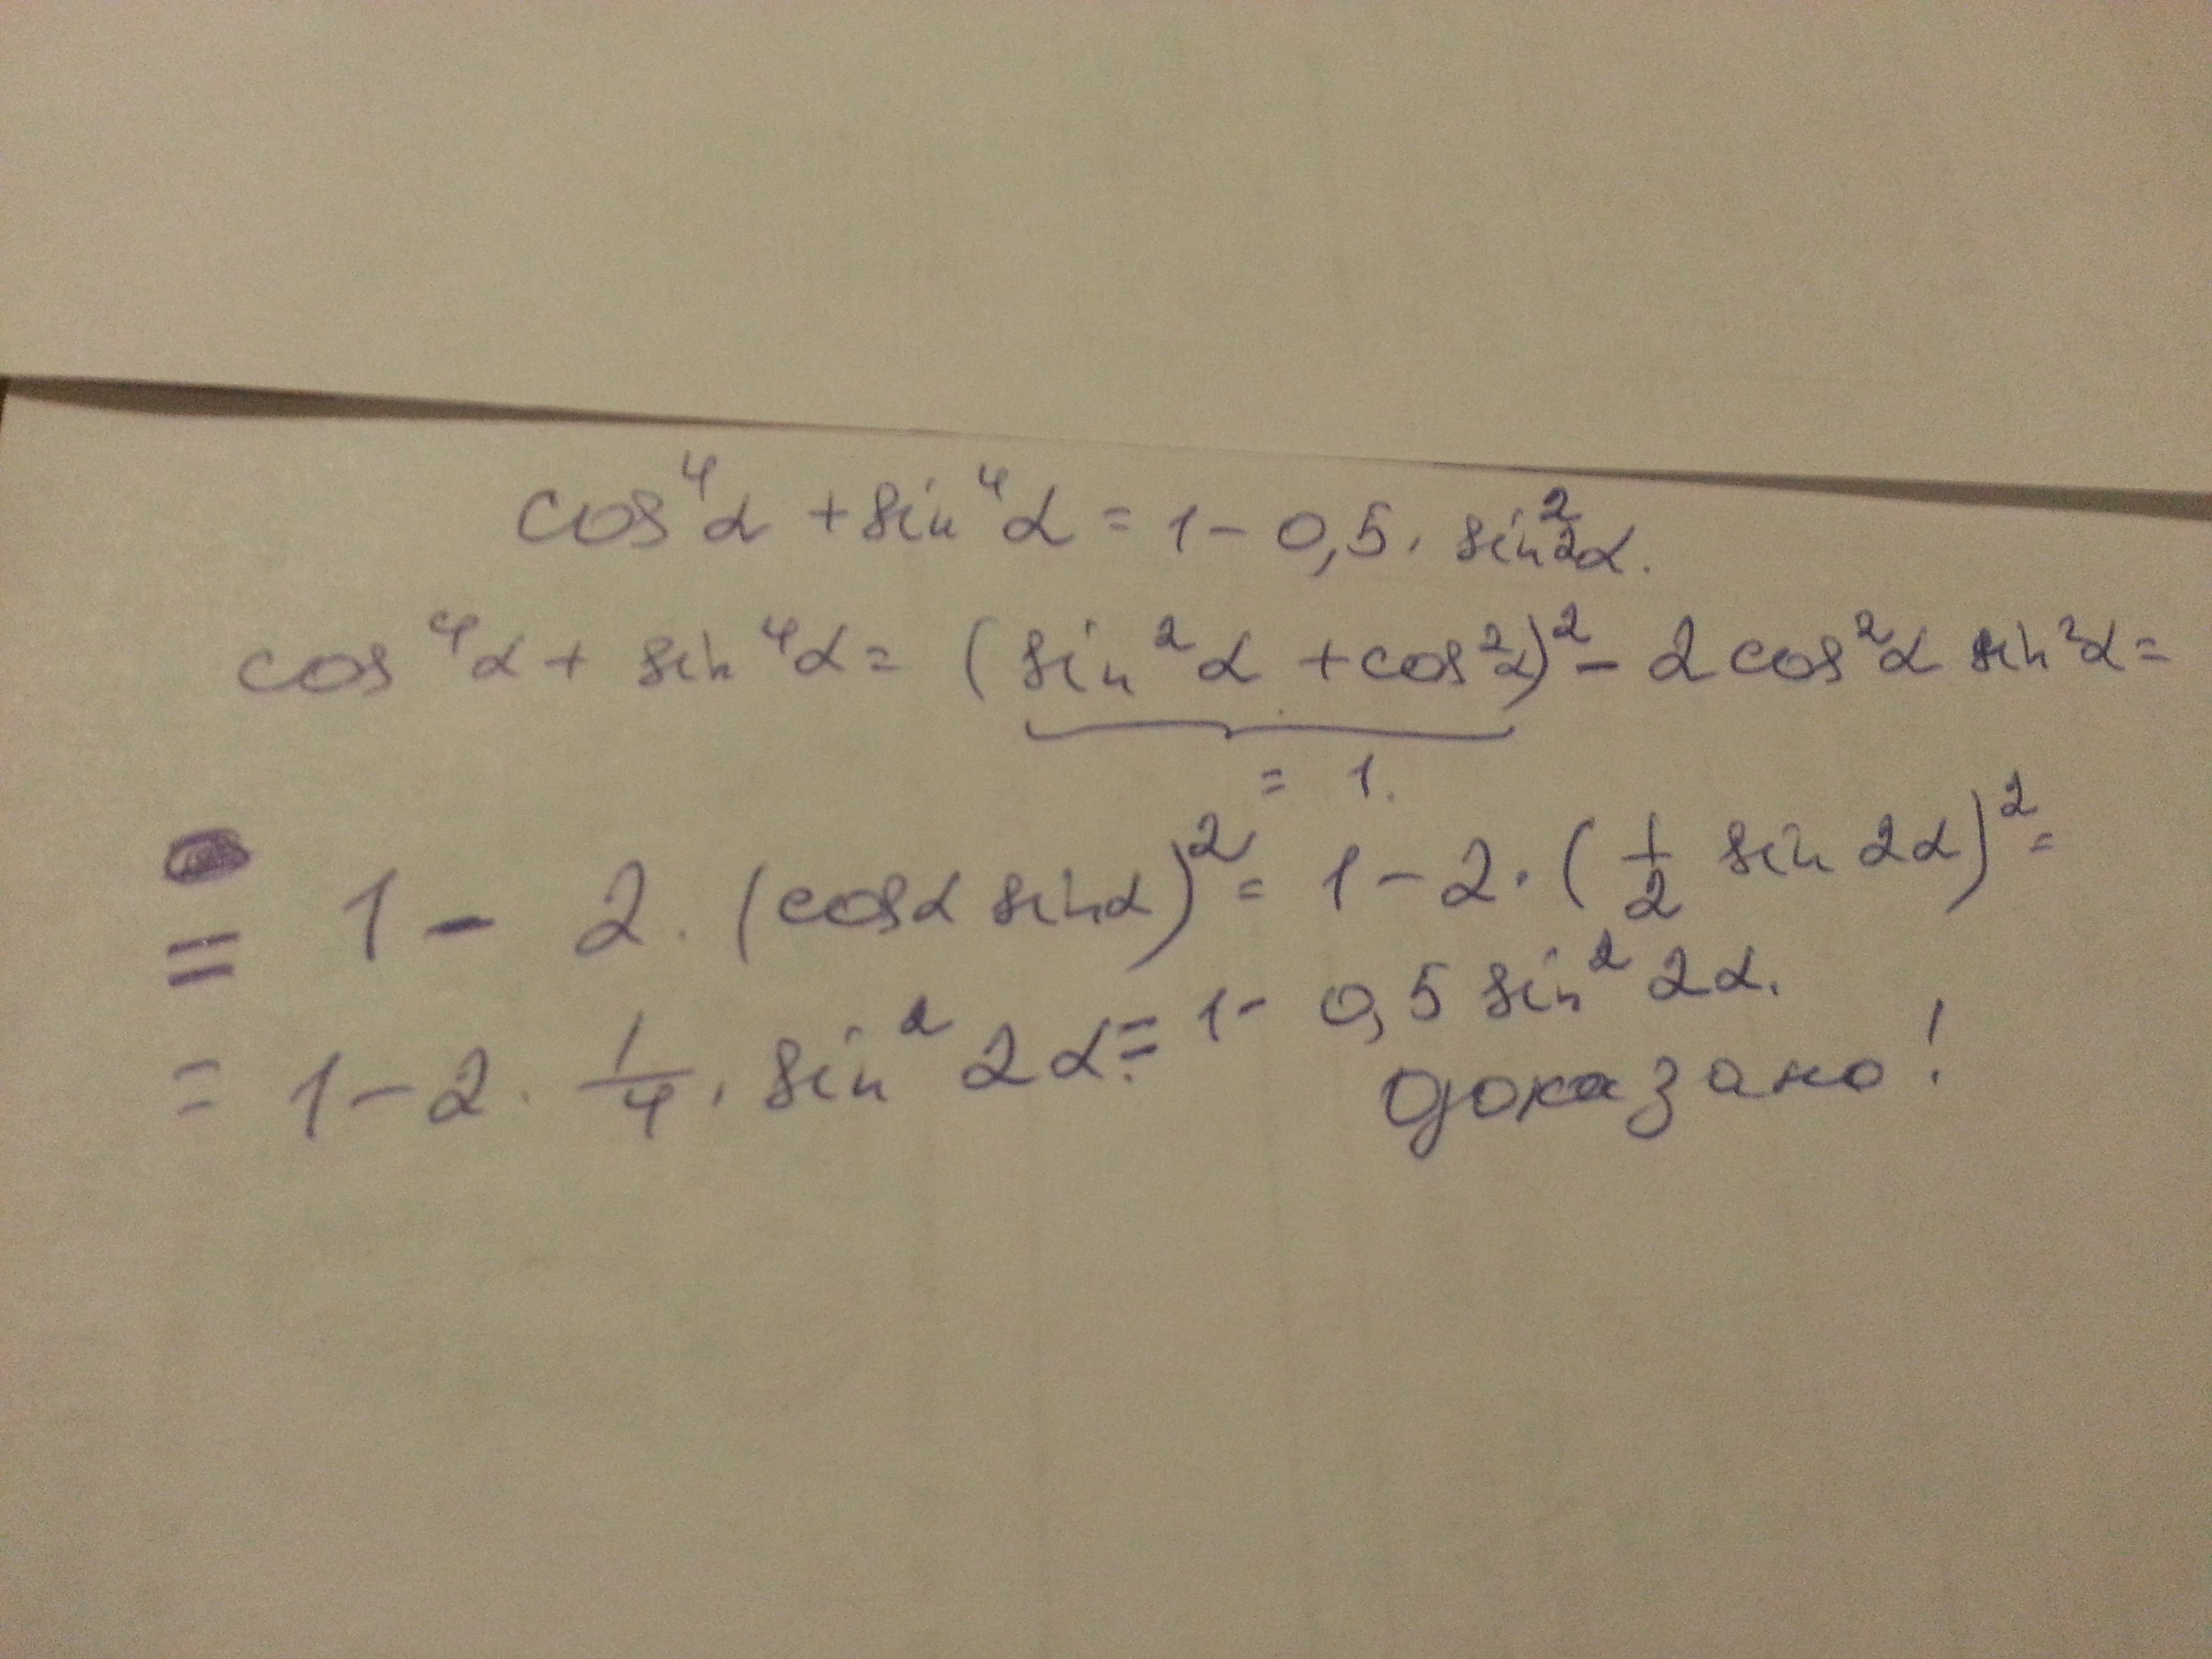 cos⁴α + sin⁴α = 1 - 0,5 · sin²2α.
cos⁴α + sin⁴α = (sin²α + cos²α)² - 2cos²α sin²α =
= 1.
= 1 - 2 · (cosα sinα)² = 1 - 2 · (1/2 sin 2α)² =
= 1 - 2 · 1/4 · sin² 2α = 1 - 0,5 sin² 2α.
доказано!